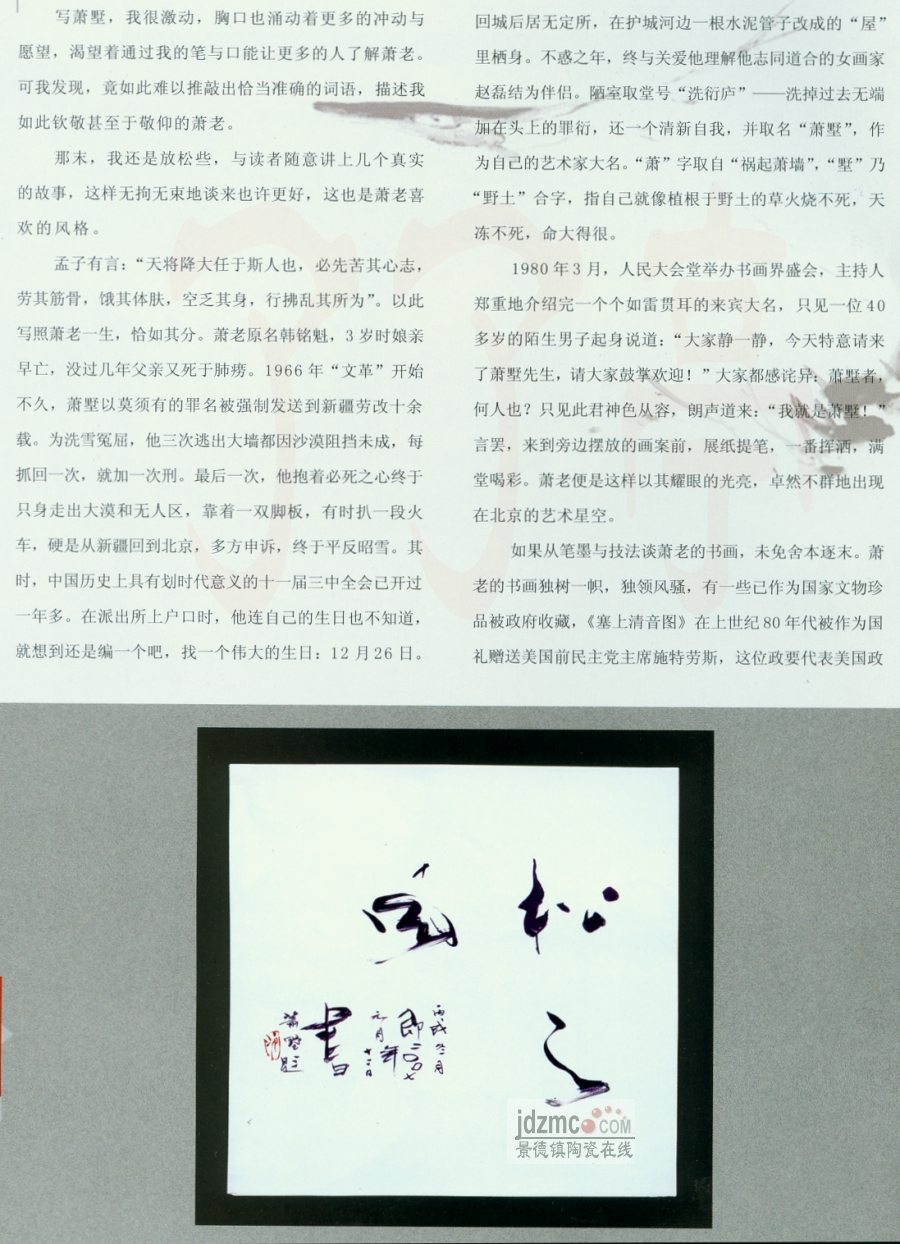 写萧墅，我很激动，胸口也涌动着更多的冲动与
愿望，渴望着通过我的笔与口能让更多的人了解萧老。
可我发现，竟如此难以推敲出恰当准确的词语，描述我
如此钦敬甚至于敬仰的萧老。
那末，我还是放松些，与读者随意讲上几个真实
的故事，这样无拘无束地谈来也许更好，这也是萧老喜
欢的风格。
孟子有言：“天将降大任于斯人也，必先苦其心志，
劳其筋骨，饿其体肤，空乏其身，行拂乱其所为”。以此
写照萧老一生，恰如其分。萧老原名韩铭魁，3岁时娘亲
早亡，没过几年父亲又死于肺痨。1966年“文革”开始
不久，萧墅以莫须有的罪名被强制发送到新疆劳改十余
载。为洗雪冤屈，他三次逃出大墙都因沙漠阻挡未成，每
抓回一次，就加一次刑。最后一次，他抱着必死之心终于
只身走出大漠和无人区，靠着一双脚板，有时扒一段火
车，硬是从新疆回到北京，多方申诉，终于平反昭雪。其
时，中国历史上具有划时代意义的十一届三中全会已开过
一年多。在派出所上户口时，他连自己的生日也不知道，
就想到还是编一个吧，找一个伟大的生日：12月26日。
回城后居无定所，在护城河边一根水泥管子改成的“屋”
里栖身。不惑之年，终与关爱他理解他志同道合的女画家
赵磊结为伴侣。陋室取堂号“洗衍庐”——洗掉过去无端
加在头上的罪衍，还一个清新自我，并取名“萧墅”，作
为自己的艺术家大名。“萧”字取自“祸起萧墙”，“墅”乃
“野土”合字，指自己就像植根于野土的草火烧不死，天
冻不死，命大得很。
1980年3月，人民大会堂举办书画界盛会，主持人
郑重地介绍完一个个如雷贯耳的来宾大名，只见一位40
多岁的陌生男子起身说道：“大家静一静，今天特意请来
了萧墅先生，请大家鼓掌欢迎！”大家都感诧异：萧墅者，
何人也？只见此君神色从容，朗声道来：“我就是萧墅！”
言罢，来到旁边摆放的画案前，展纸提笔，一番挥洒，满
堂喝彩。萧老便是这样以其耀眼的光亮，卓然不群地出现
在北京的艺术星空。
如果从笔墨与技法谈萧老的书画，未免舍本逐末。萧
老的书画独树一帜，独领风骚，有一些已作为国家文物珍
品被政府收藏，《塞上清音图》在上世纪80年代被作为国
礼赠送美国前民主党主席施特劳斯，这位政要代表美国政
松之
画
書
丙戌冬月
即二〇〇七年
元月十二日
萧墅题
jdzmc.COM
景德镇陶瓷在线